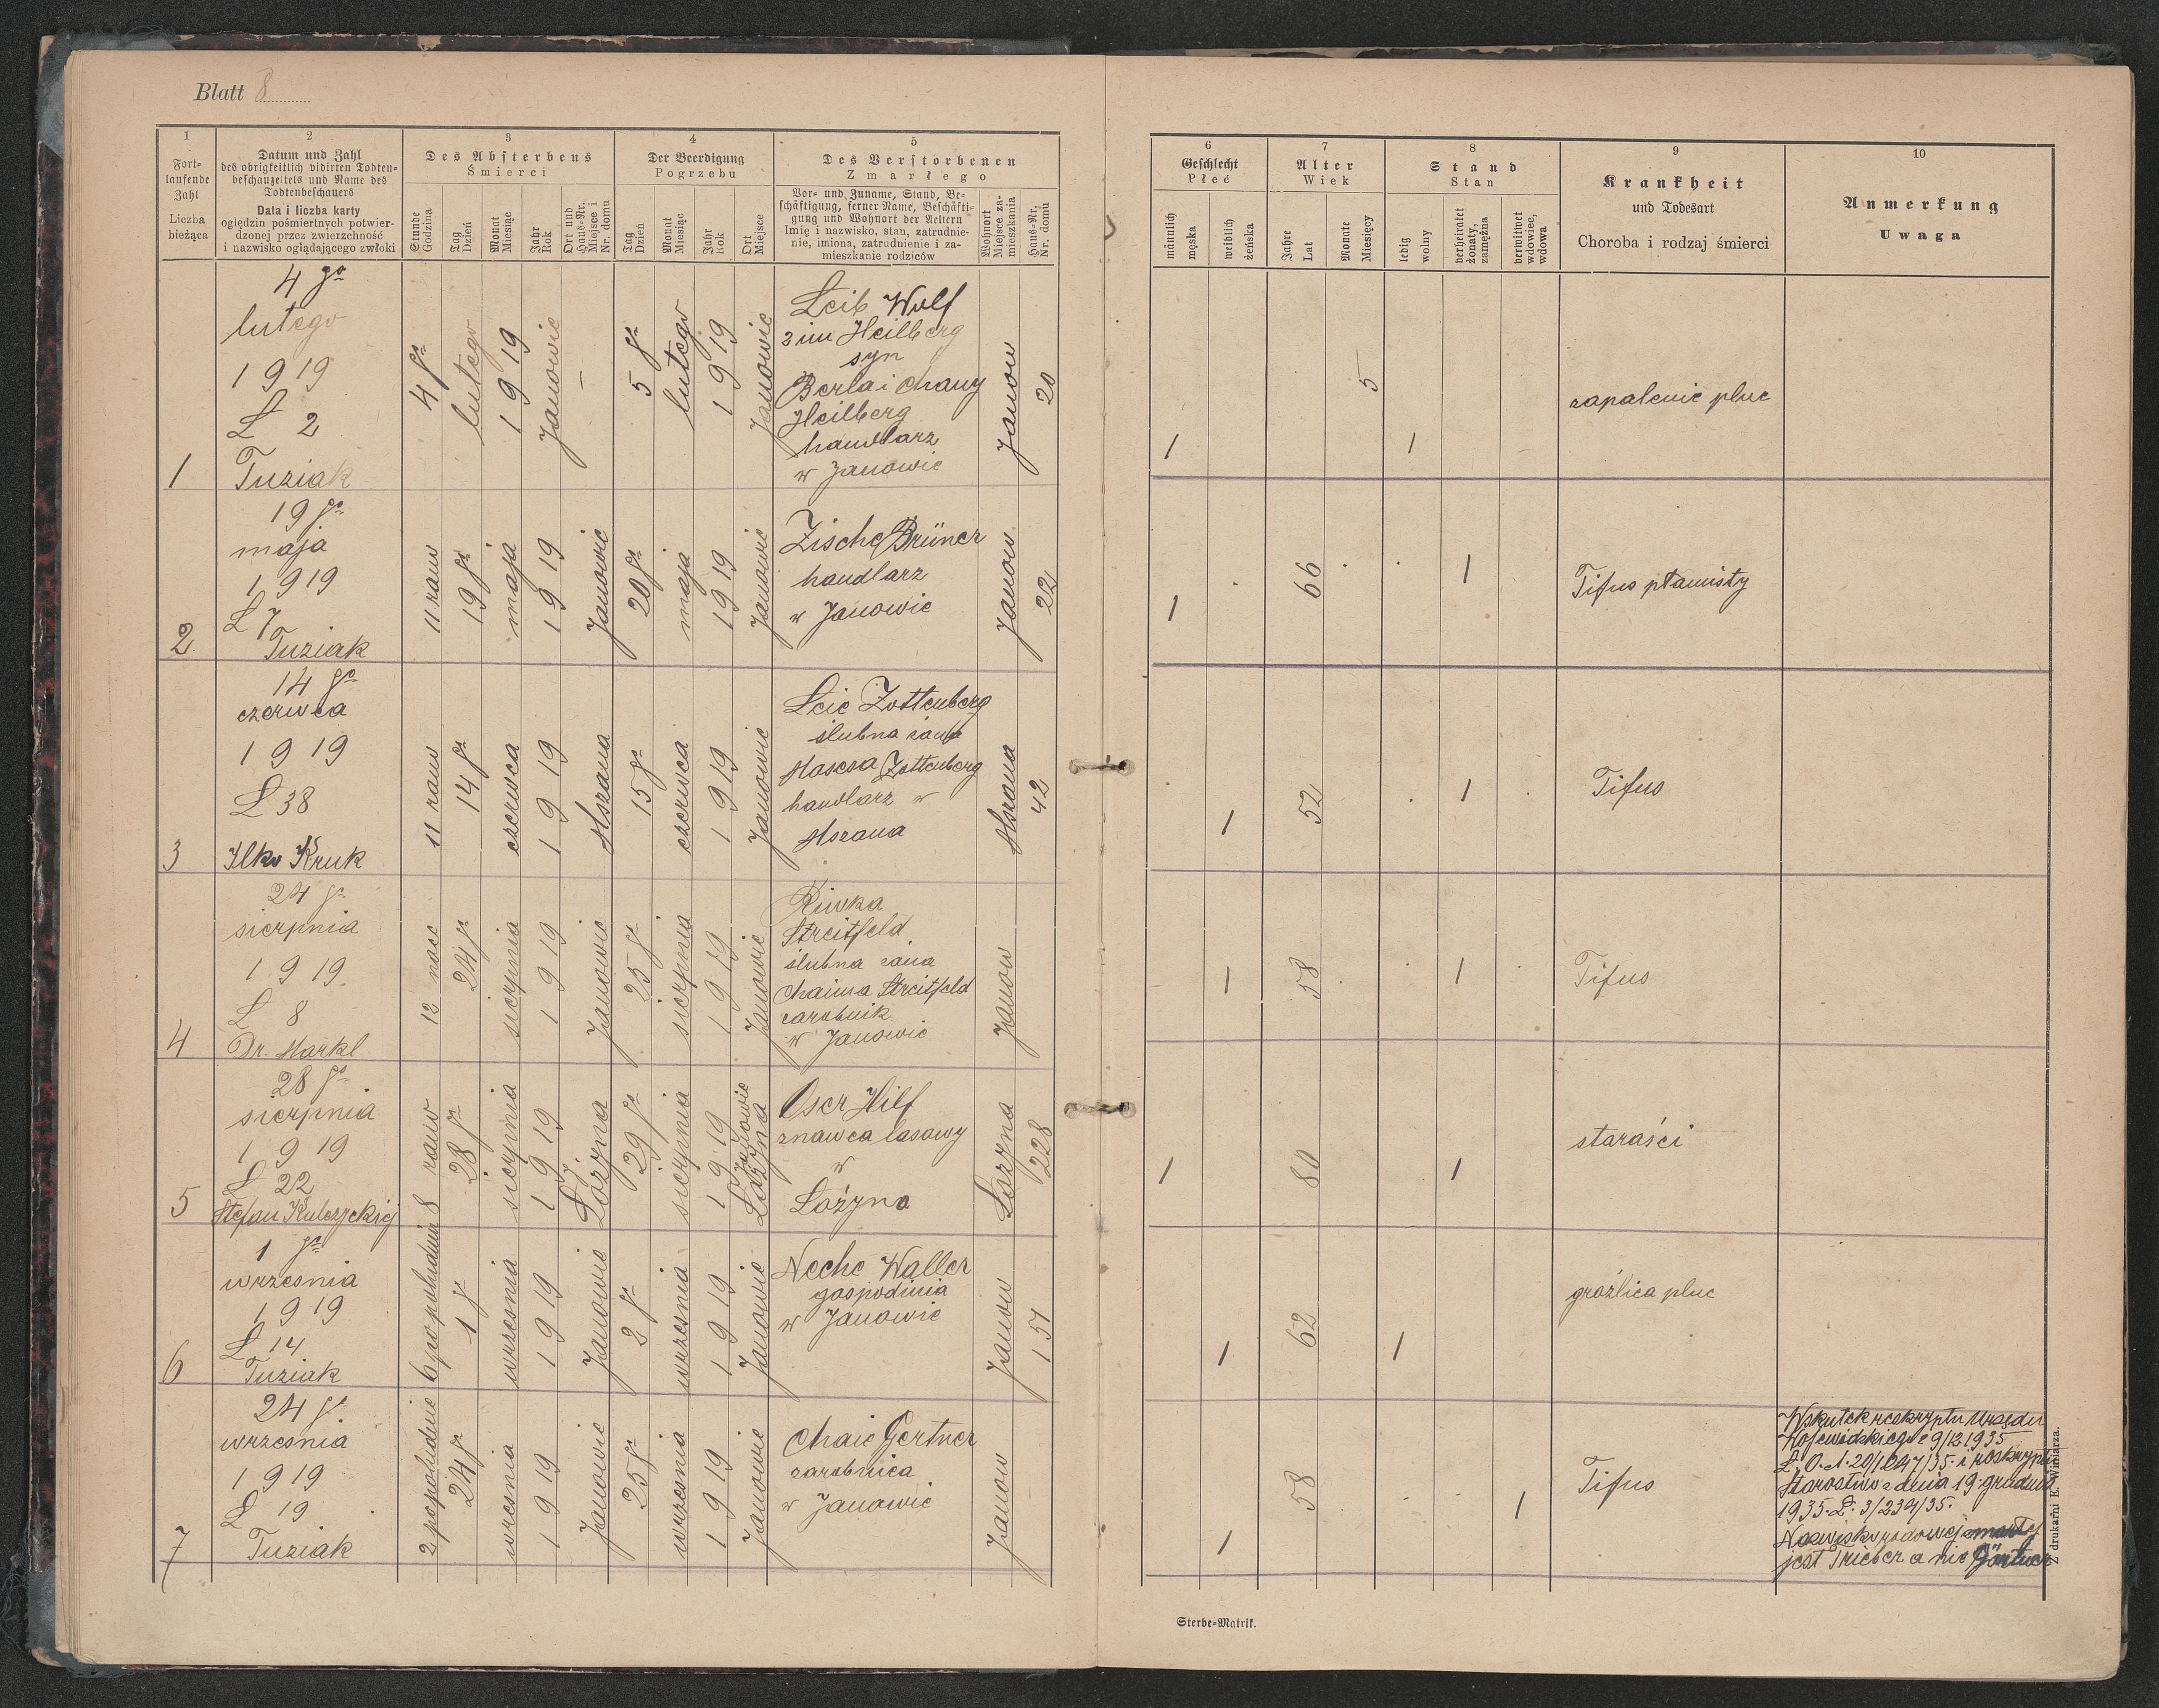 Blatt 8
1
Fort-
laufende
Zahl
Liczba
bieżąca
2
Datum und Zahl
des obrigkeitlich vidirten Todten-
beschauzettels und Name des
Todtenbeschauers
Data i liczba karty
oględzin pośmiertnych potwier-
dzonej przez zwierzchność
i nazwisko oglądającego zwłoki
3
Des Absterbens
Śmierci
Stunde
Godzina
Tag
Dzień
Monat
Miesiąc
Jahr
Rok
Ort und
Haus-Nr.
Miejsce i
Nr. domu
4
Der Beerdigung
Pogrzebu
Tag
Dzień
Monat
Miesiąc
Jahr
Rok
Ort
Miejsce
5
Des Verstorbenen
Zmarłego
Vor- und Zuname, Stand, Be-
schäftigung, ferner Name, Beschäfti-
gung und Wohnort der Aeltern
Imię i nazwisko, stan, zatrudnie-
nie, imiona, zatrudnienie i za-
mieszkanie rodziców
Wohnort
Miejsce za-
mieszkania
Haus-Nr.
Nr. domu
6
Geschlecht
Płeć
männlich
męska
weiblich
żeńska
7
Alter
Wiek
Jahre
Lat
Monate
Miesięcy
8
Stand
Stan
ledig
wolny
verheiratet
żonaty,
zamężna
verwittwet
wdowiec,
wdowa
9
Krankheit
und Todesart
Choroba i rodzaj śmierci
10
Anmerkung
Uwaga
1
4 go
lutego
1919
L 2
Tuziak
4 go
lutego
1919
Janowie
–
5 go
lutego
1919
Janowie
Leib Wolf
2 im Heilberg
syn
Berla i Chany
Heilberg
handlarz
w Janowie
Janow
20
1
5
1
zapalenie pluc
2
19 go
maja
1919
L 7
Tuziak
11 rano
19 go
maja
1919
Janowie
20 go
maja
1919
Janowie
Zische Brüner
handlarz
w Janowie
Janow
22
1
66
1
Tifus plamisty
3
14 go
czerwca
1919
L 38
Ilko Kruk
11 rano
14 go
czerwca
1919
Mszana
15 go
czerwca
1919
Janowie
Leie Zottenberg
ślubna żona
Mosesa Zottenberg
handlarz w
Mszana
Mszana
42
1
52
1
Tifus
4
24 go
sierpnia
1919
L 8
Dr. Markl
12 noce
24 go
sierpnia
1919
Janowie
25 go
sierpnia
1919
Janowie
Riwka
Streitfeld
ślubna żona
Chaima Streitfeld
zarobnik
w Janowie
Janow
1
58
1
Tifus
5
28 go
sierpnia
1919
L 22
Stefan Kulczyckiej
8 rano
28 go
sierpnia
1919
Łozyna
29 go
sierpnia
1919
Janowie
Łozyna
Oser Hilf
znawca lasowy
w
Łozyna
Łozyna
228
1
80
1
starości
6
1 go
wrzesnia
1919
L 14
Tuziak
6 po poludniu
1 go
wrzesnia
1919
Janowie
2 go
wrzesnia
1919
Janowie
Neche Waller
gospodinia
w Janowie
Janow
151
1
62
1
groźlica pluc
7
24 go
wrzesnia
1919
L 19
Tuziak
2 popoludnie
24 go
wrzesnia
1919
Janowie
25 go
wrzesnia
1919
Janowie
Chaie Gertner
zarobnica
w Janowie
Janow
–
1
58
1
Tifus
Wskutek reskryptu Urzędu
Wojewódzkiego z 9/12 1935
L. O.A. 20/1247/35. i reskryptu
Starostwo z dnia 19. grudnia
1935. L. 3/234/35.
Nazwisko rodowej zmarłej
jest Trieber a nie Gärtner
Z drukarni E. Winiarza.
Sterbe-Matrik.